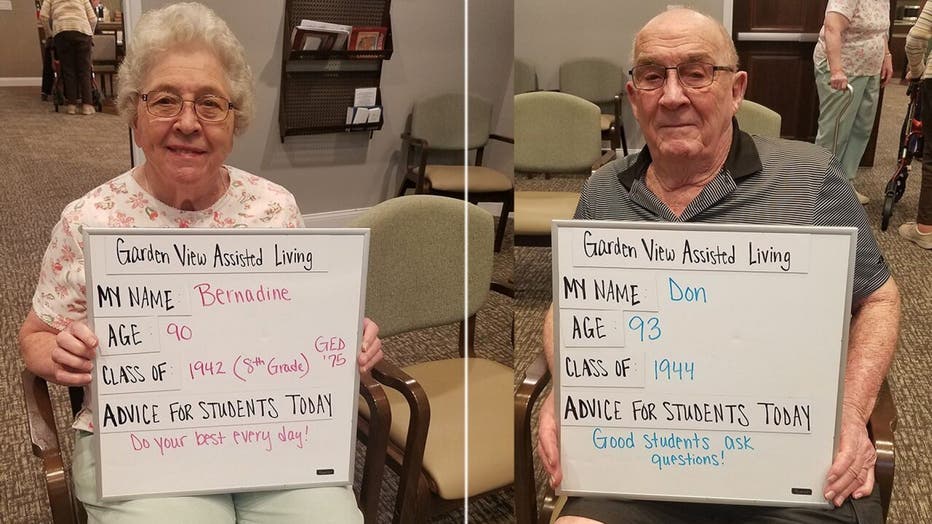 Garden View Assisted Living
MY NAME: Bernadine
AGE: 90
CLASS OF: 1942 (8th Grade) GED '75
ADVICE FOR STUDENTS TODAY
Do your best every day!
Garden View Assisted Living
MY NAME: Don
AGE: 93
CLASS OF: 1944
ADVICE FOR STUDENTS TODAY
Good students ask
questions!